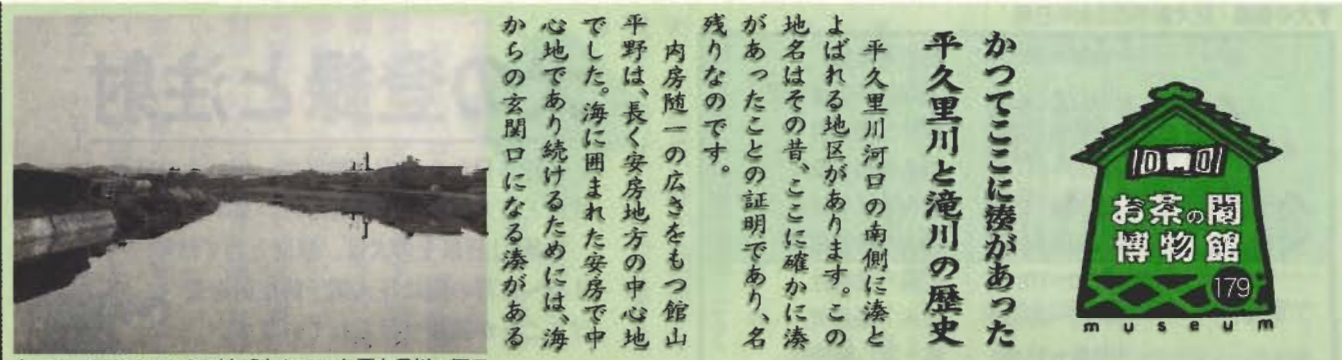 お茶の間
博物館
179
museum
かつてここに湊があった
平久里川と滝川の歴史
平久里川河口の南側に湊と
よばれる地区があります。この
地名はその昔、ここに確かに湊
があったことの証明であり、名
残りなのです。
内房随一の広さをもつ館山
平野は、長く安房地方の中心地
でした。海に囲まれた安房で中
心地であり続けるためには、海
からの玄関口になる湊がある